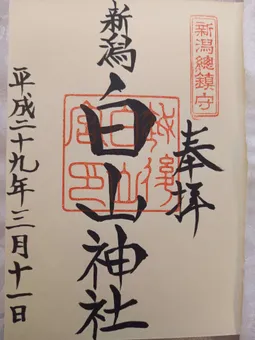 新潟總鎮守
奉拝
新潟
白山神社
平成二十九年三月十一日